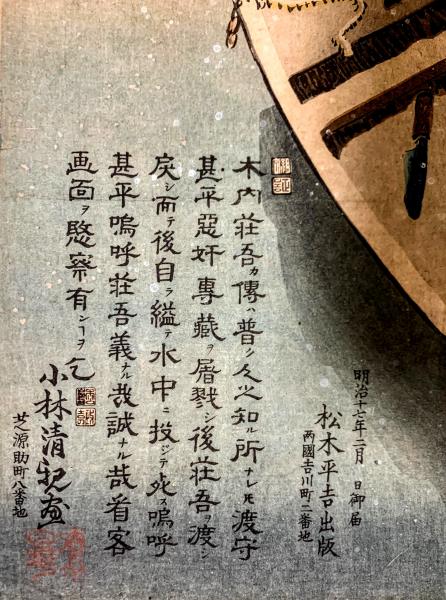 明治十七年二月 日御届
松木平吉出版
両國吉川町二番地
木内荘吾カ傳ハ普ク人之知ル所ナレ𪜈渡守
甚平惡奸專藏ヲ屠戮シ後荘吾ヲ渡シ
戻シ而テ後自ラ縊テ水中ニ投ジテ死ス嗚呼
甚平嗚呼荘吾義ナル哉誠ナル哉看客
画面ヲ愍察有ンヿヲ乞
小林清親画
芝源助町八番地